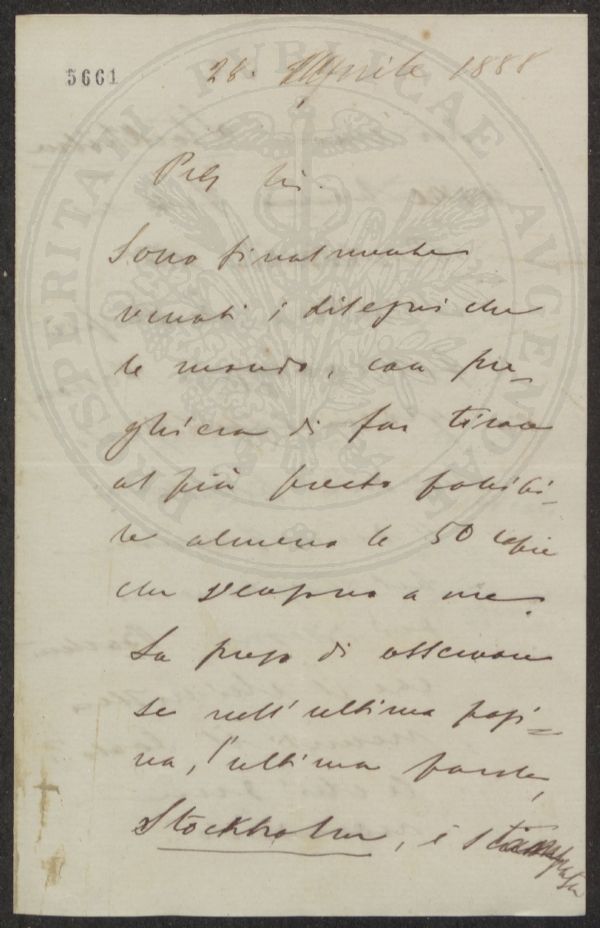 5661
28. Aprile 1888
PROSPERITATI PUBLICAE AUGENDAE
Preg Sig.
Sono finalmente
venuti i disegni che
le mando, con pre-
ghiera di far tirare
al più presto possibi-
le almeno le 50 copie
che servono a me.
La prego di osservare
se nell'ultima pagi-
na, l'ultima parola,
Stockholm, è stampata